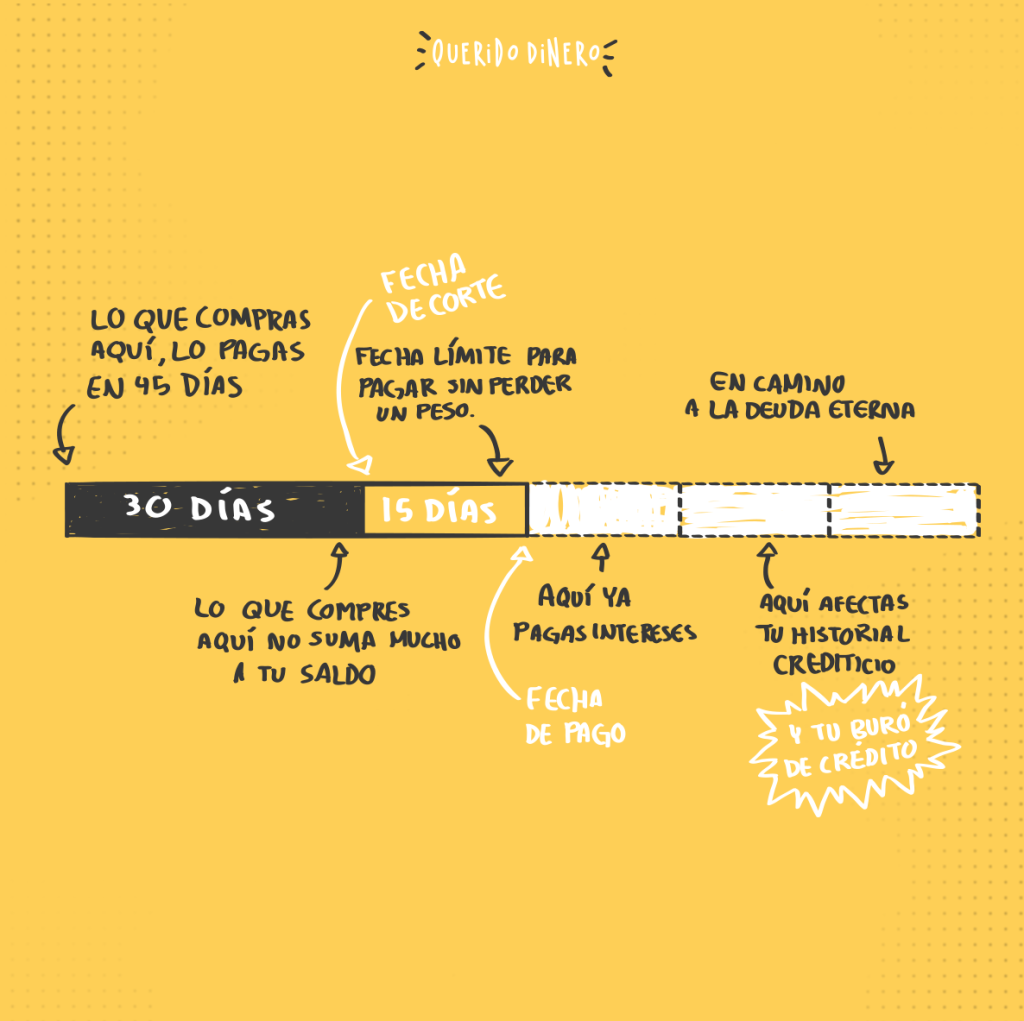 QUERIDO DINERO
FECHA
DE CORTE
LO QUE COMPRAS
AQUÍ, LO PAGAS
EN 45 DÍAS
FECHA LÍMITE PARA
PAGAR SIN PERDER
UN PESO.
EN CAMINO
A LA DEUDA ETERNA
30 DÍAS
15 DÍAS
LO QUE COMPRES
AQUÍ NO SUMA MUCHO
A TU SALDO
AQUÍ YA
PAGAS INTERESES
FECHA
DE PAGO
AQUÍ AFECTAS
TU HISTORIAL
CREDITICIO
Y TU BURÓ
DE CRÉDITO